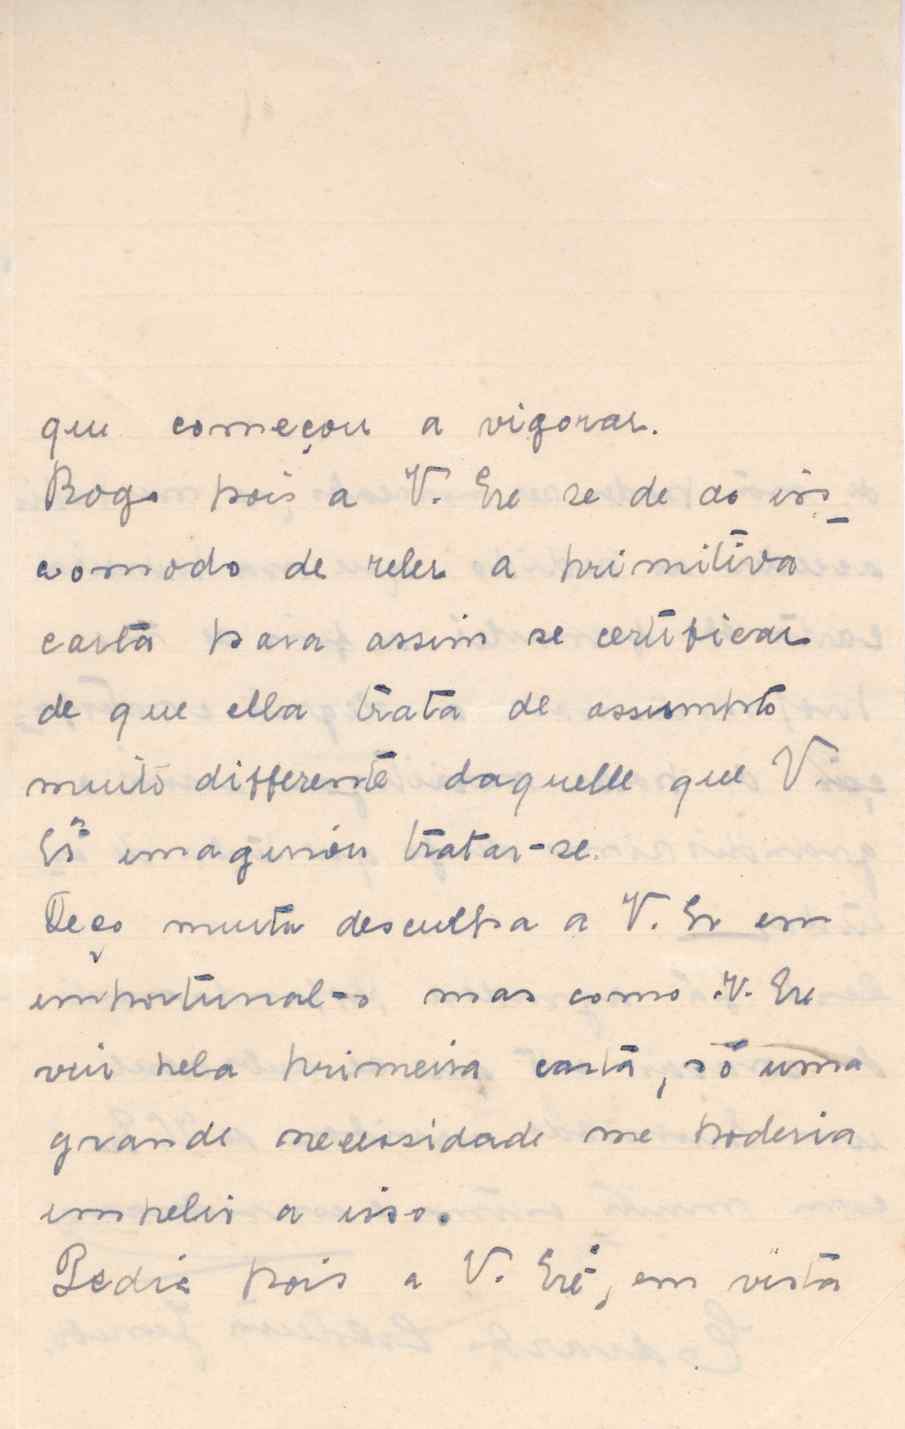 que começou a vigorar.
Rogo pois a V. Exe se de ao in-
comodo de reler a primitiva
carta para assim se certificar
de que ella trata de assumpto
muito differente daquelle que V.
Exª imaginou tratar-se.
Peço muita desculpa a V. Ex em
importunal-o mas como V. Exe
viu pela primeira carta, só uma
grande necessidade me poderia
impelir a isso.
Pedia pois a V. Exe, em vista